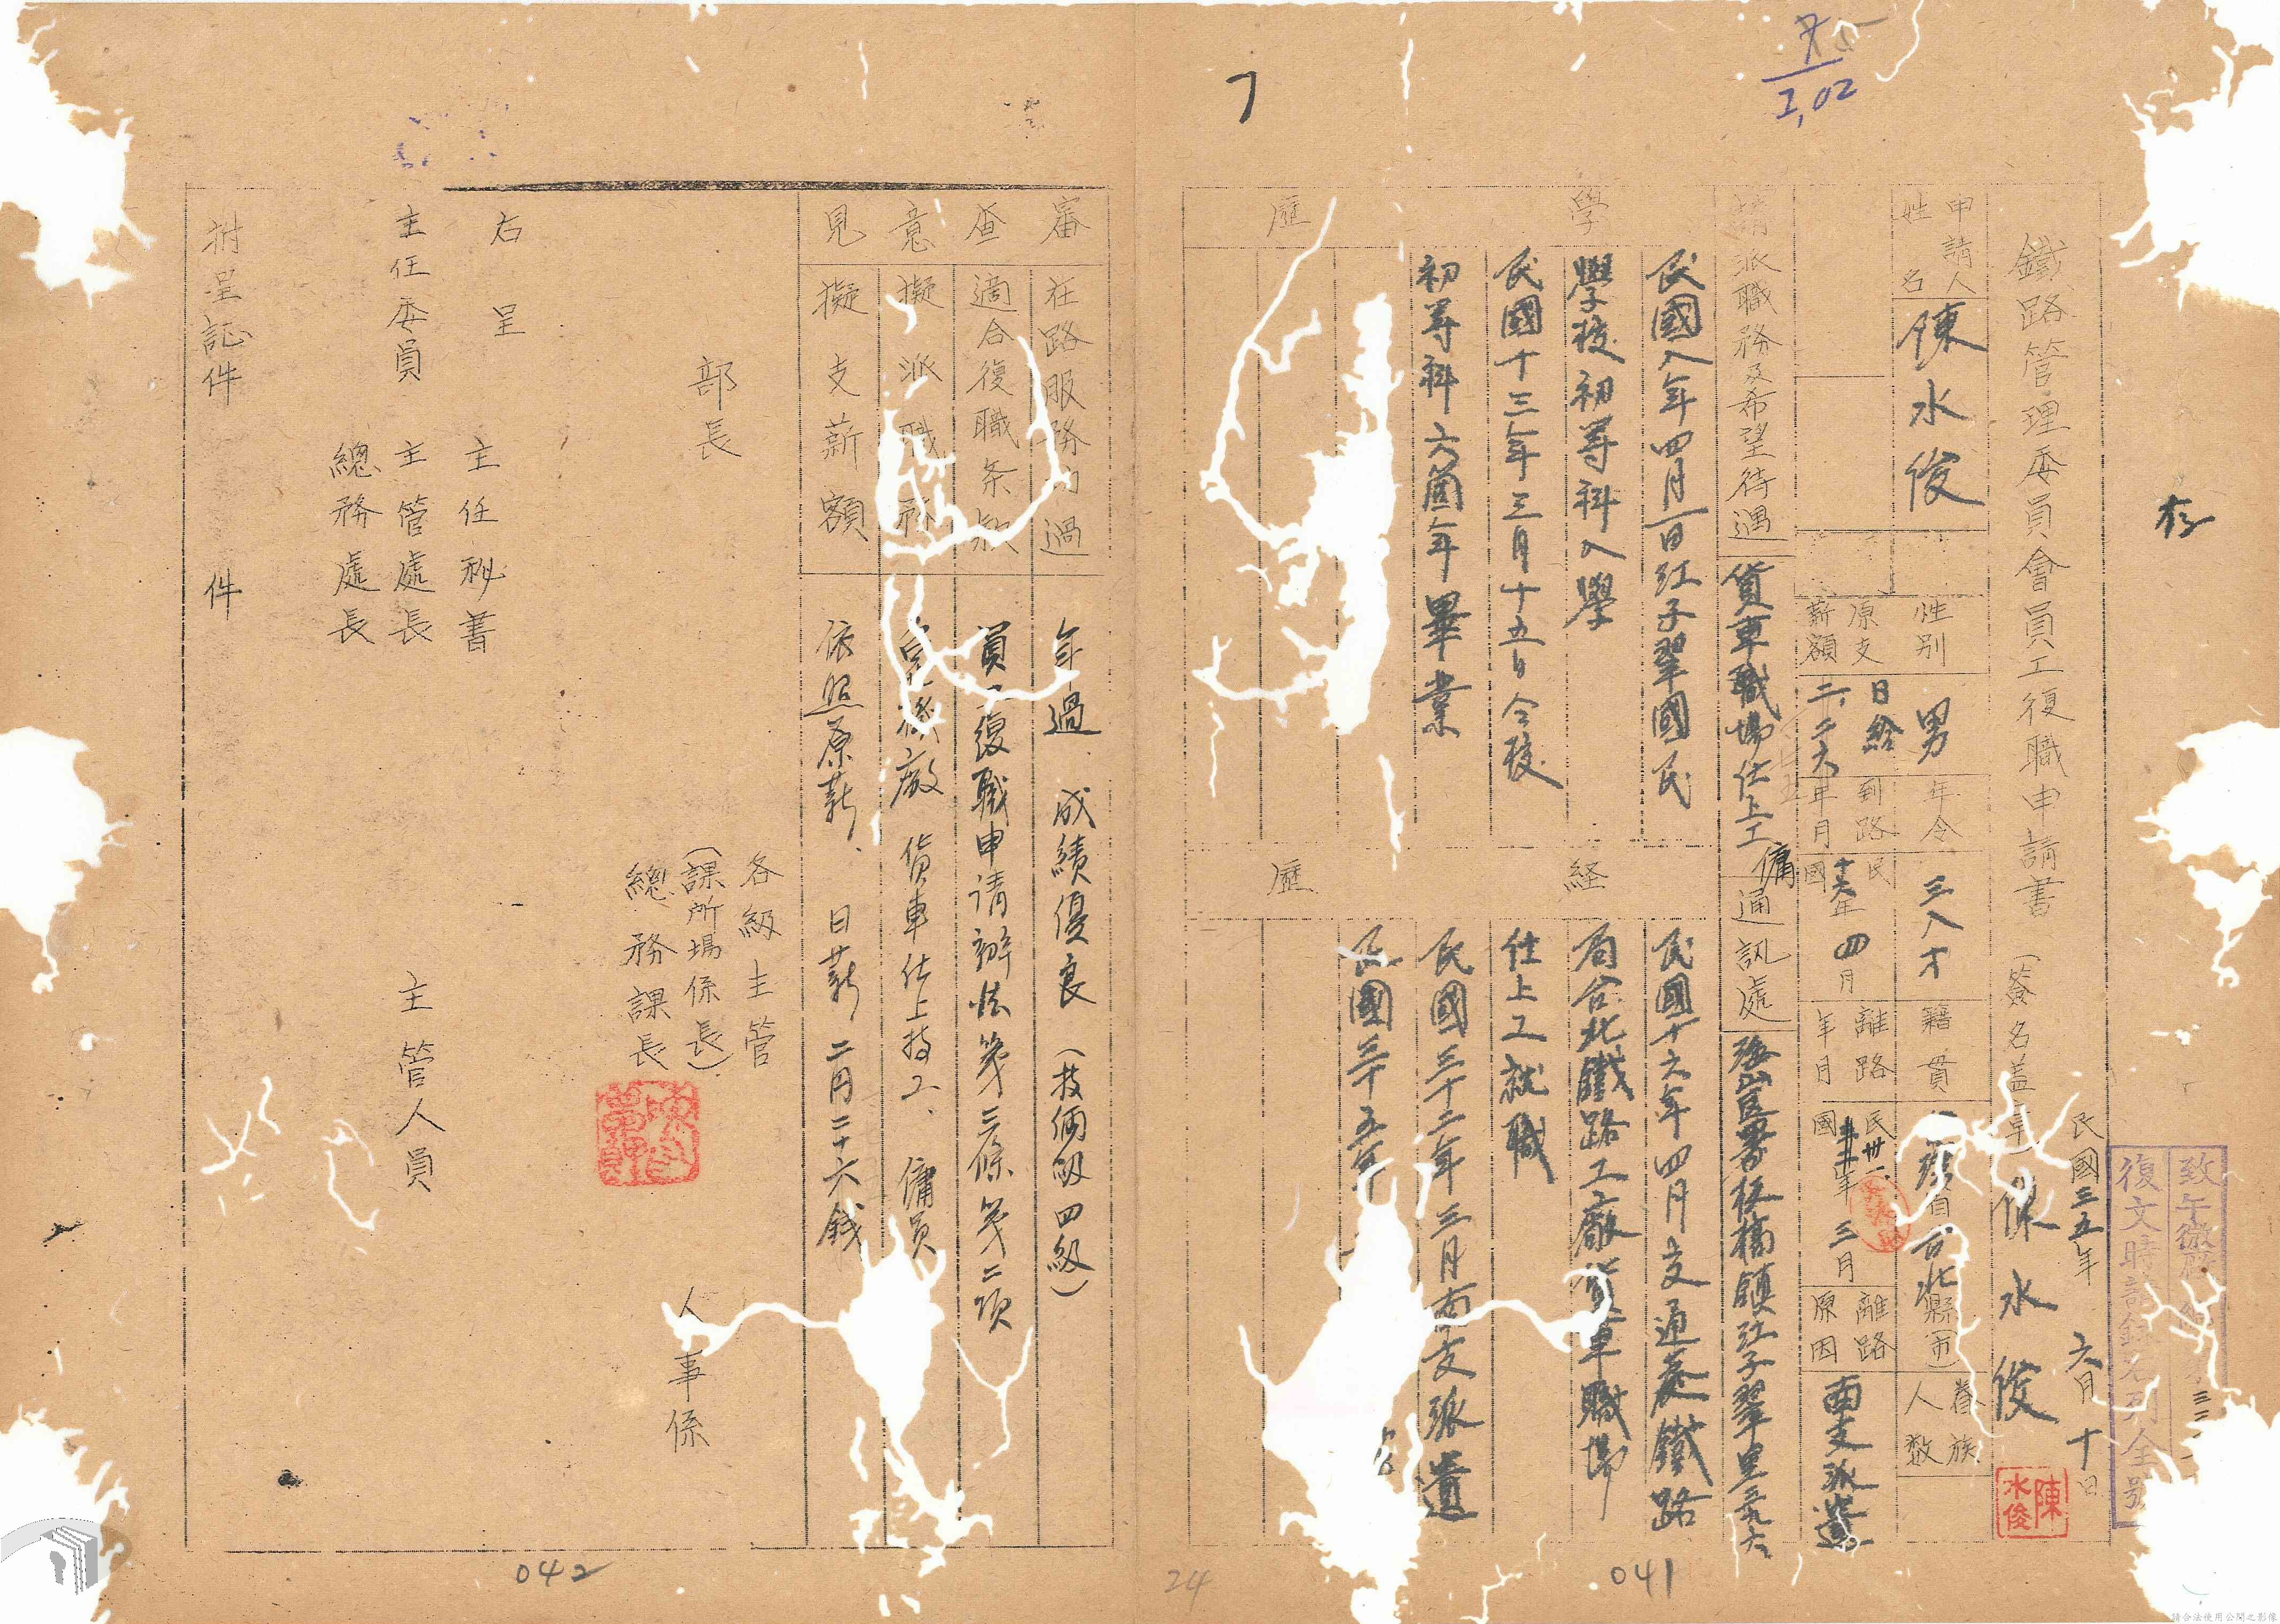 7
1,02
存
鐵路管理委員會員工復職申請書
(簽名盖章)
陳水俊
民國三五年六月十日
陳水俊
復文時請錄名列全號
申請人姓名
陳水俊
性別
男
年令
三八才
籍貫
省台北縣(市)
眷族人数
原支薪額
日給二.二六
到路年月
民國十六年四月
離路年月
民國卅一年三月
離路原因
南支派遣
請派職務及希望待遇
貨車職場仕上工
傭
通訊處
海山區署板橋鎮江子翠里三九六
學歷
民國八年四月一日江子翠國民
學校初等科入學
民國十三年三月十五日仝校
初等科六箇年畢業
経歷
民國十六年四月交通處鐵路
局台北鐵路工廠貨車職場
仕上工就職
民國三十二年三月南支派遣
民國三十五年
審查意見
在路服務 過
年過、成績優良(技倆級四級)
適合復職条款
員工復職申请辦法第三條第二項
擬派職務
機廠貨車仕上技工、傭員
擬支薪額
依照原薪、日薪、二円二十六錢
各級主管
(課所場係長)
總務課長
人事係
部長
右呈
主任秘書
主任委員
主管處長
總務處長
主管人員
附呈証件
件
042
24
041
請合法使用公開之影像